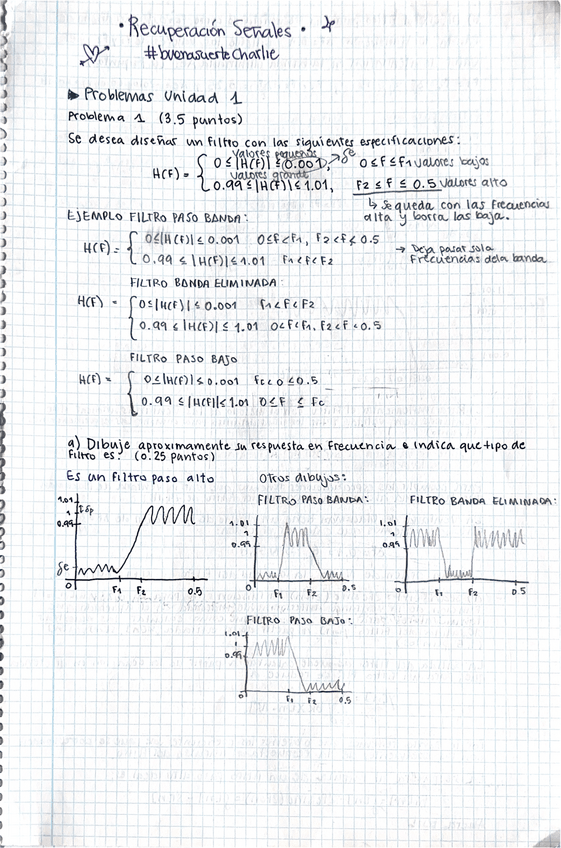 • Recuperación Señales •
#buenasuerteCharlie
▶ Problemas Unidad 1
Problema 1 (3,5 puntos)
Se desea diseñar un filtro con las siguientes especificaciones:
Valores pequeños
H(F) = { 0 ≤ |H(F)| ≤ 0.001, → δe 0 ≤ F ≤ F1 valores bajos
valores grande
0.99 ≤ |H(F)| ≤ 1.01, F2 ≤ F ≤ 0.5 valores alto
↳ se queda con las frecuencias
alta y borra las baja.
EJEMPLO FILTRO PASO BANDA:
H(F) = { 0≤|H(F)| ≤ 0.001 0≤F<F1, F2<F≤0.5
0.99 ≤ |H(F)| ≤ 1.01 F1<F<F2
→ Deja pasar sola
Frecuencias de la banda
FILTRO BANDA ELIMINADA:
H(F) = { 0≤|H(F)| ≤ 0.001 F1<F<F2
0.99 ≤ |H(F)| ≤ 1.01 0<F<F1, F2<F<0.5
FILTRO PASO BAJO
H(F) = { 0≤|H(F)| ≤ 0.001 Fc<0≤0.5
0.99 ≤ |H(F)| ≤ 1.01 0≤F ≤ Fc
a) Dibuje aproximamente su respuesta en frecuencia e indica que tipo de
filtro es: (0.25 puntos)
Es un filtro paso alto
Otros dibujos:
FILTRO PASO BANDA:
FILTRO BANDA ELIMINADA:
1.01
1
0.99
δp
δe
0 F1 F2 0.5
1.01
1
0.99
0 F1 F2 0.5
1.01
1
0.99
0 F1 F2 0.5
FILTRO PASO BAJO:
1.01
1
0.99
0 F1 F2 0.5